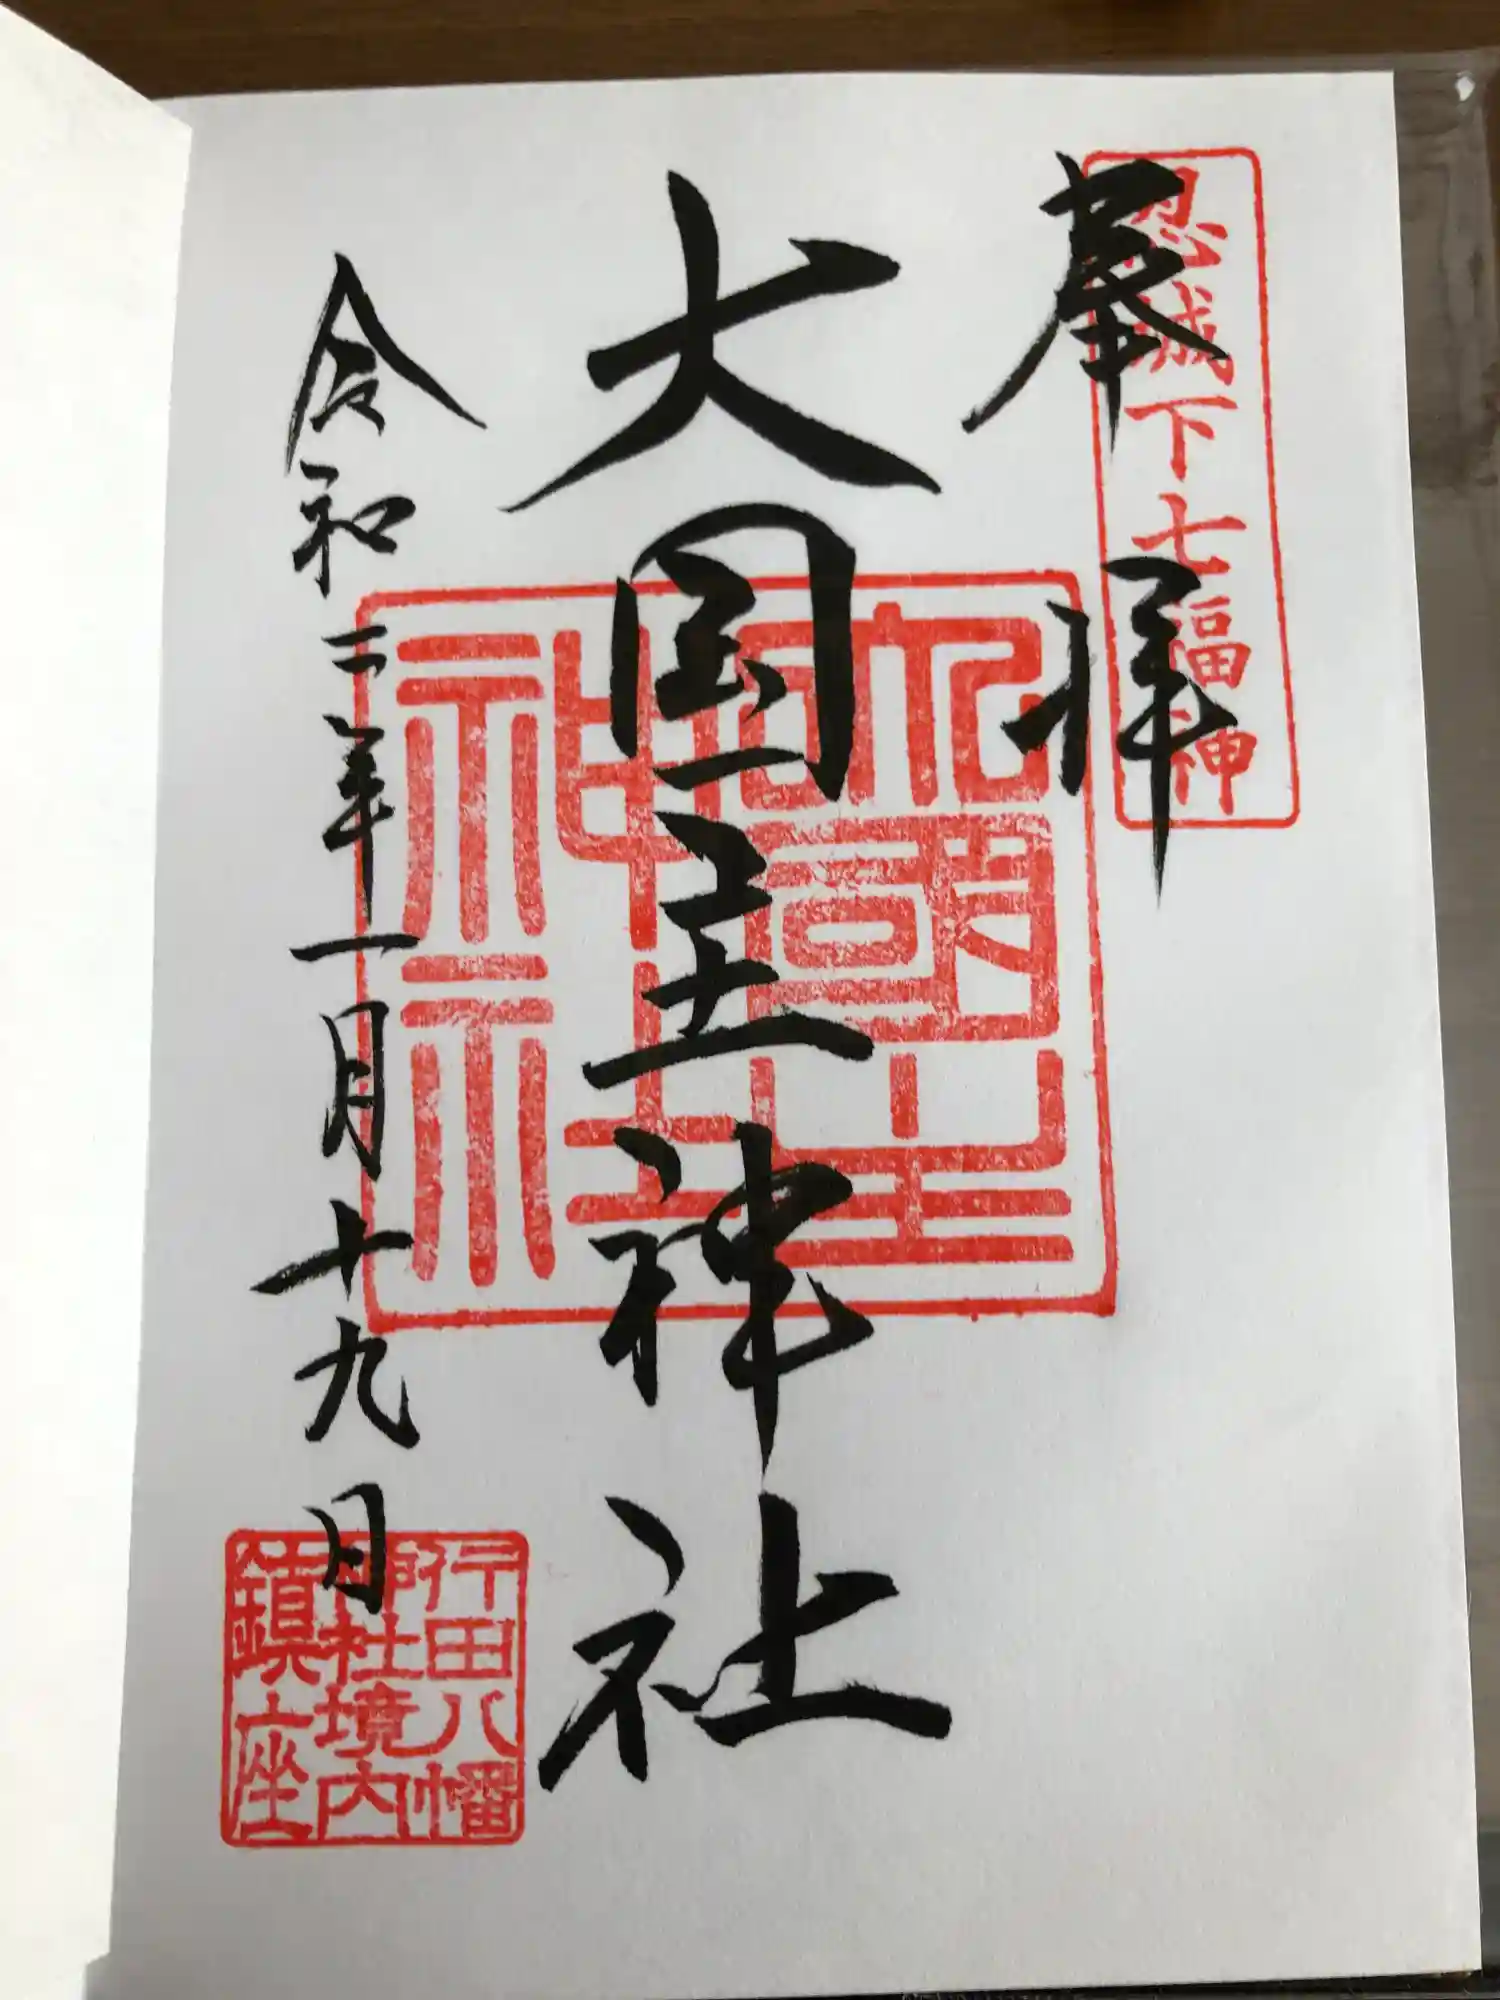 奉拝
忍城下七福神
大国主神社
大國主神社
令和二年一月十九日
行田八幡
神社境内
鎮座